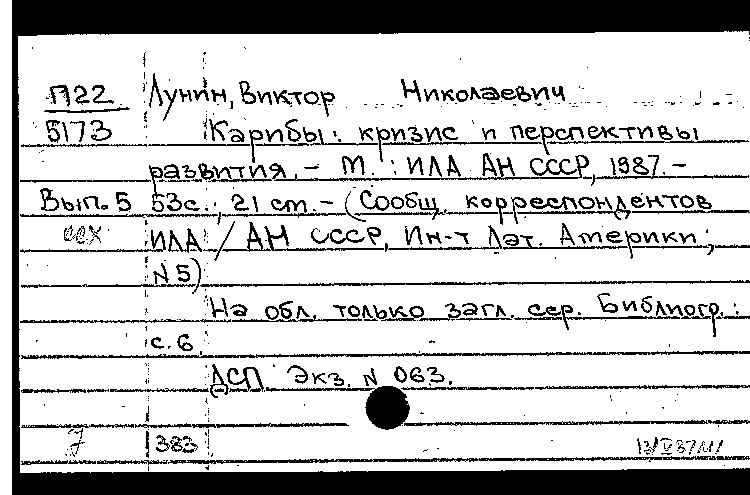 П22 Лунин, Виктор Николаевич
5173 Карибы: кризис и перспективы
развития. – М.: ИЛА АН СССР, 1987. –
Вып. 5 53с.; 21 cm. – (Сообщ. корреспондентов
ИЛА / АН СССР, Ин-т Лат. Америки;
N 5)
На обл. только загл. сер. Библиогр.:
с. 6
ДСП Экз. N 063.
7 383